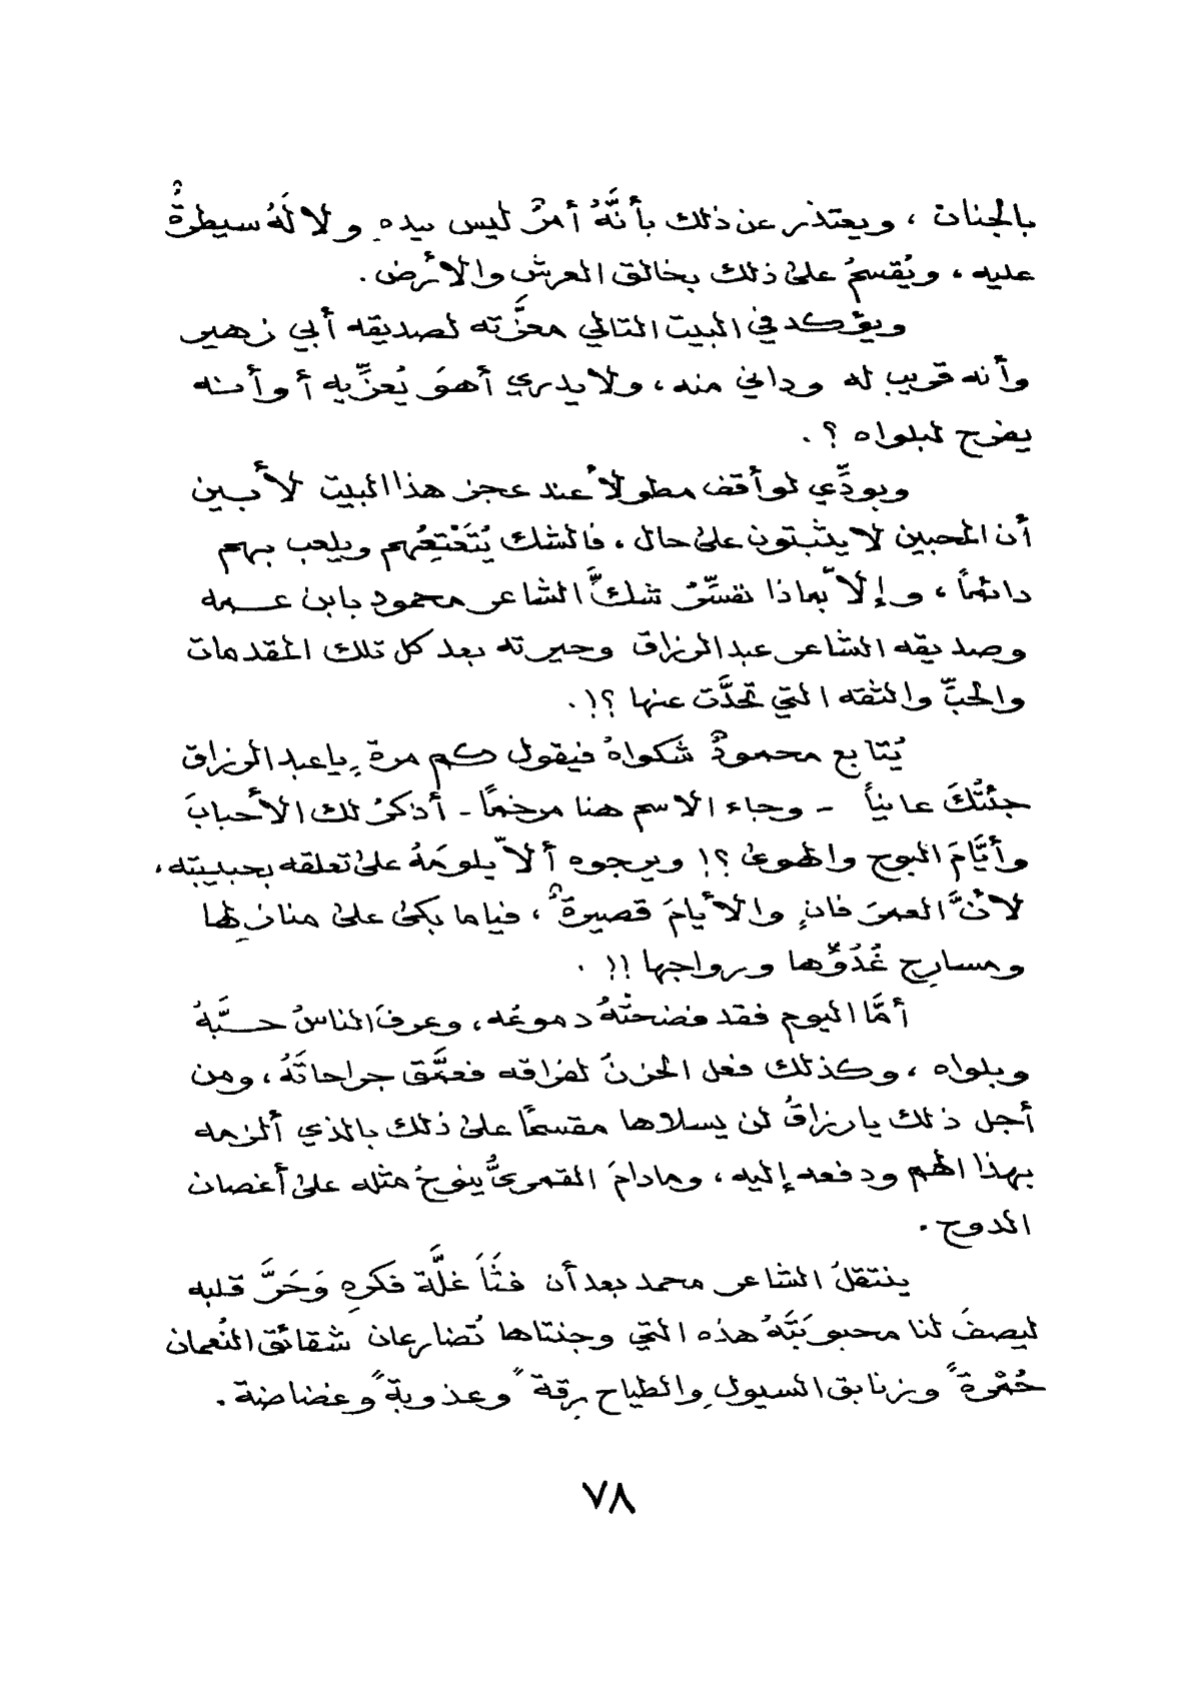 بالجنان ، ويعتذر عن ذلك بأنَّهُ أمرٌ ليس بيدهِ ولا لَهُ سيطرةٌ
عليه ، ويُقسمُ على ذلك بخالق العرشِ والأرض .
ويؤكد في البيت التالي معزَّته لصديقه أبي زهير
وأنه قريب له وداني منه ، ولا يدري أهوَ يُعزِّيه أو أنه
يفرح لبلواه ؟ .
وبودِّي لو أقف مطولاً عند عجز هذا البيت لأبين
أن المحبين لا يثبتون على حال ، فالشك يُتَعْتِعُهم ويلعب بهم
دائماً ، وإلاّ بماذا نفسِّرُ شكَّ الشاعر محمود بابن عمه
وصديقه الشاعر عبدالرزاق وحيرته بعد كل تلك المقدمات
والحبِّ والثقه التي تحدَّت عنها ؟! .
يُتابع محمودٌ شكواهُ فيقول كم مرة ٍ ياعبدالرزاق
جئتُكَ عانياً - وجاء الاسم هنا مرخماً - أذكرُ لك الأحبابَ
وأيَّامَ البوح والهوى ؟! ويرجوه ألاّ يلومَهُ على تعلقه بحبيبته ،
لأنَّ العمرَ فانٍ والأيامَ قصيرةٌ ، فياما بكى على منازلِها
ومسارِح غُدُوِّها ورواحِها !! .
أمَّا اليوم فقد فضحتْهُ دموعُه ، وعرفَ الناسُ حبَّهُ
وبلواه ، وكذلك فعل الحزنُ لفراقه فعمَّق جراحاتَهُ ، ومن
أجل ذلك يارزاقُ لن يسلاها مقسماً على ذلك بالذي ألزمه
بهذا الهم ودفعه إليه ، ومادامَ القمريُّ ينوحُ مثله على أغصان
الدوح .
ينتقلُ الشاعر محمد بعد أن فثَأَ غلَّة فكرهِ وَحَرَّ قلبه
ليصفَ لنا محبوبَتَهُ هذه التي وجنتاها تُضارعان شقائق النُعمان
حُمْرةً وزنابق السيولِ والطياح رِقة ً وعذوبة ً وغضاضة .
٧٨